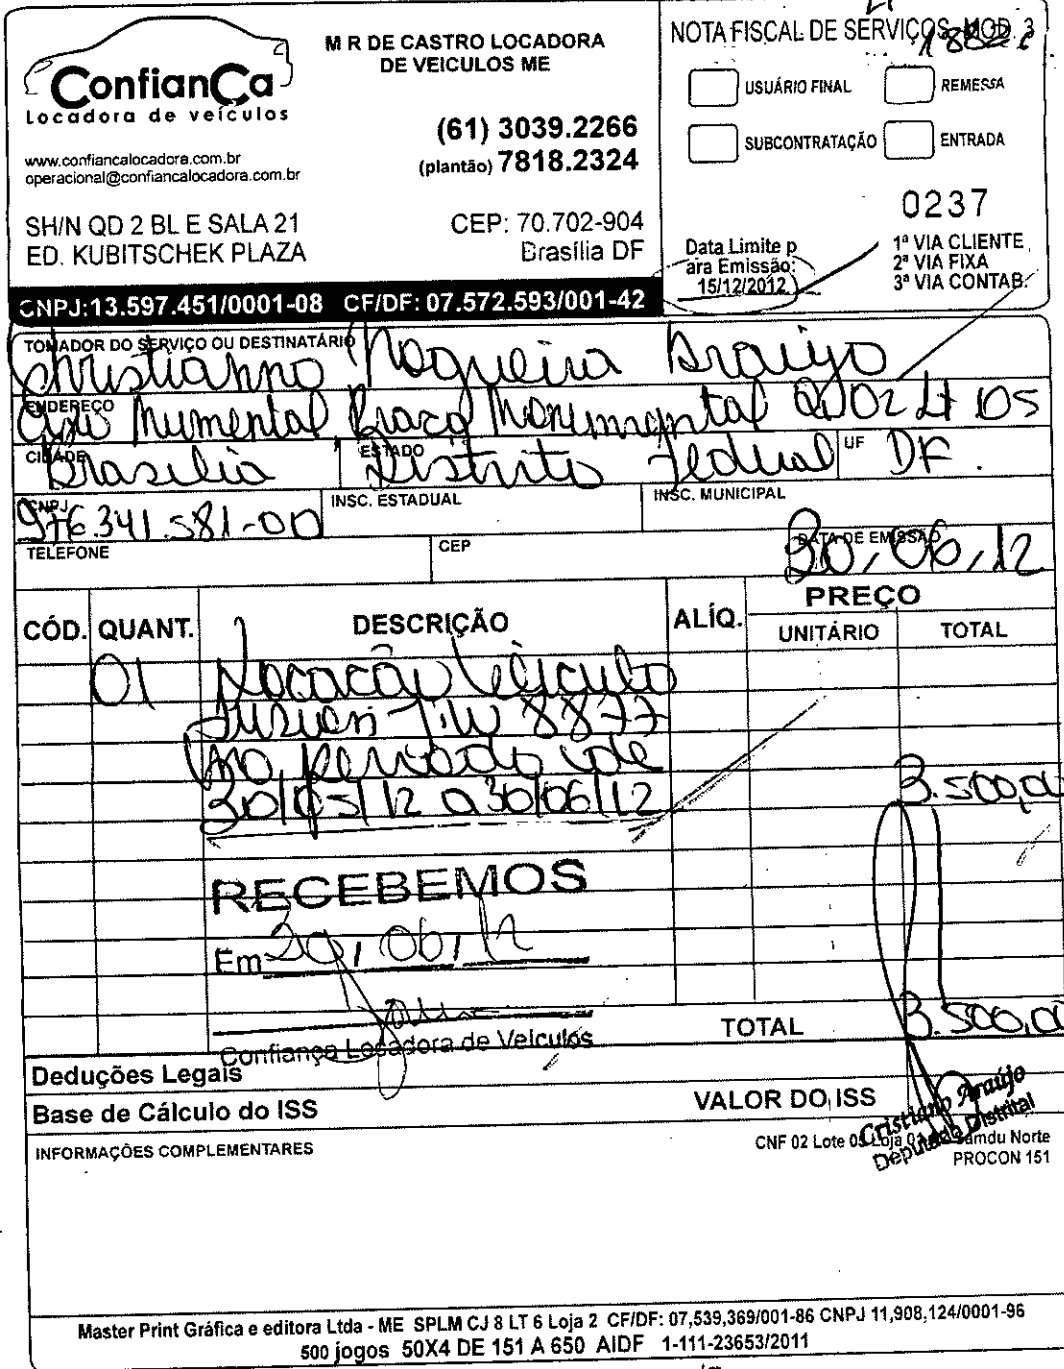 ConfianCa
Locadora de veículos
www.confiancalocadora.com.br
operacional@confiancalocadora.com.br
SH/N QD 2 BL E SALA 21
ED. KUBITSCHEK PLAZA
M R DE CASTRO LOCADORA
DE VEICULOS ME
(61) 3039.2266
(plantão) 7818.2324
CEP: 70.702-904
Brasília DF
CNPJ:13.597.451/0001-08 CF/DF: 07.572.593/001-42
NOTA FISCAL DE SERVIÇOS MOD. 3
USUÁRIO FINAL
REMESSA
SUBCONTRATAÇÃO
ENTRADA
0237
Data Limite p
ara Emissão:
15/12/2012
1ª VIA CLIENTE
2ª VIA FIXA
3ª VIA CONTAB.
TOMADOR DO SERVIÇO OU DESTINATÁRIO
Christianno Nogueira Araujo
ENDEREÇO
Mumental Praça Monumental QD 02 LT 05
CIDADE Brasilia ESTADO Distrito Federal UF DF.
CNPJ 976.341.581-00 INSC. ESTADUAL INSC. MUNICIPAL
TELEFONE CEP DATA DE EMISSÃO 30/06/12
CÓD. QUANT. DESCRIÇÃO ALÍQ. PREÇO
UNITÁRIO TOTAL
01 Locacão Veiculo
8877
no periodo de
30/05/12 a 30/06/12 3.500,00
RECEBEMOS
Em 30/06/12
Confiança Locadora de Veiculos
TOTAL 3.500,00
Deduções Legais
Base de Cálculo do ISS VALOR DO ISS
Cristiano Araújo
Deputado Distrital
INFORMAÇÕES COMPLEMENTARES
CNF 02 Lote Loja Samdu Norte
PROCON 151
Master Print Gráfica e editora Ltda - ME SPLM CJ 8 LT 6 Loja 2 CF/DF: 07,539,369/001-86 CNPJ 11,908,124/0001-96
500 jogos 50X4 DE 151 A 650 AIDF 1-111-23653/2011